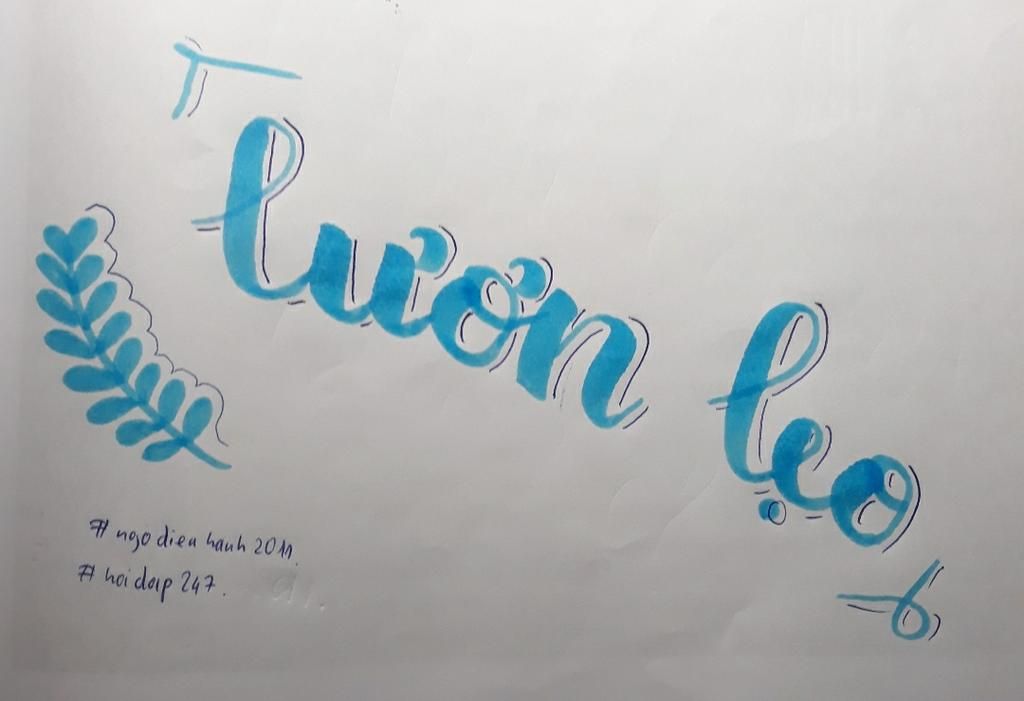 lươn lẹo
# ngo dieu hanh 2011.
# hoi dap 247.